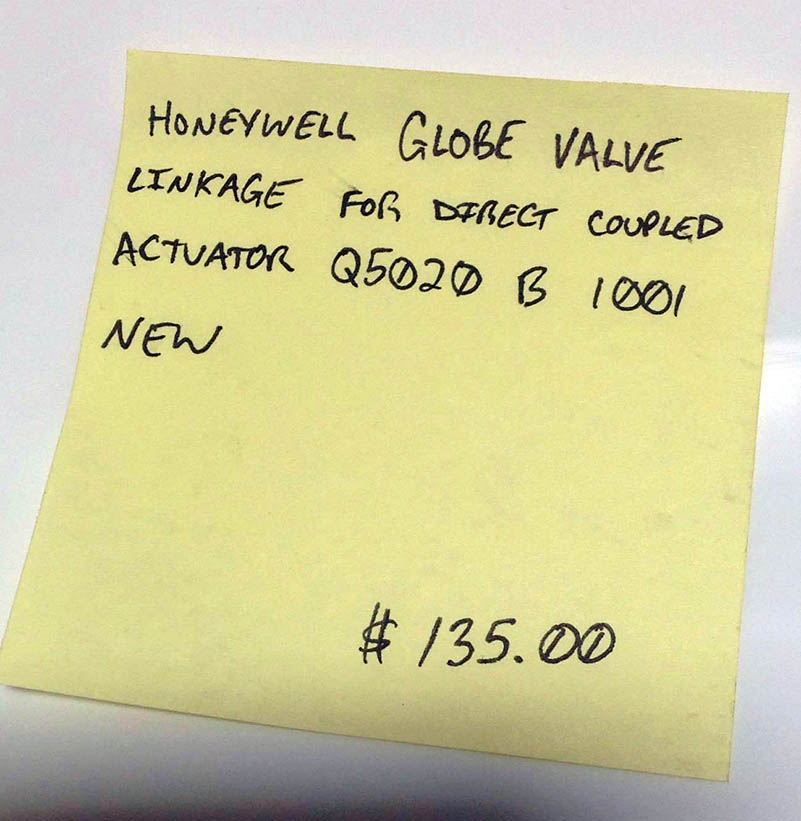 HONEYWELL GLOBE VALVE
LINKAGE FOR DIRECT COUPLED
ACTUATOR Q5020 B 1001
NEW
$ 135.00